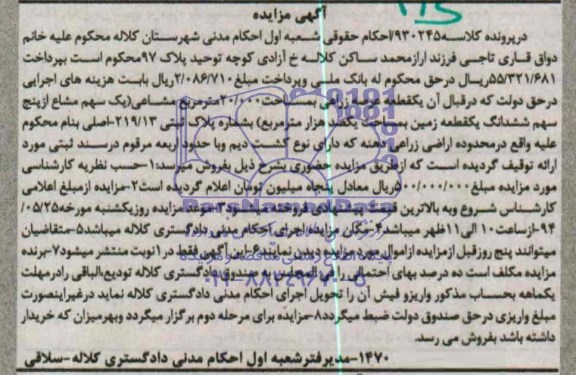 آگهی مزایده
درپرونده کلاسه۹۳۰۲۴۵/احکام حقوقی شعبه اول احکام مدنی شهرستان کلاله محکوم علیه خانم
دواق قاری تاجی فرزند ارازمحمد ساکن کلاله خ آزادی کوچه توحید پلاک ۹۷محکوم است بپرداخت
۵۵/۳۲۱/۶۸۱ریال درحق محکوم له بانک ملی وپرداخت مبلغ۲/۰۸۶/۷۱۰ریال بابت هزینه های اجرایی
درحق دولت که درقبال آن یکقطعه عرصه زراعی بمساحت۲۰/۰۰۰مترمربع مشاعی(یک سهم مشاع ازپنج
سهم ششدانگ یکقطعه زمین بمساحت یکصد هزار مترمربع) بشماره پلاک ثبتی ۲۱۹/۱۳-اصلی بنام محکوم
علیه واقع درمحدوده اراضی زراعی دهنه که دارای نوع کشت دیم وبا حدود اربعه مرقوم درسند ثبتی مورد
ارائه توقیف گردیده است که ازطریق مزایده حضوری بشرح ذیل بفروش میرسد:۱-حسب نظریه کارشناسی
مورد مزایده مبلغ۵۰۰/۰۰۰/۰۰۰ریال معادل پنجاه میلیون تومان اعلام گردیده است۲-مزایده ازمبلغ اعلامی
کارشناس شروع وبه بالاترین قیمت پیشنهادی فروخته میشود۳-موعد مزایده روزیکشنبه مورخه۰۵/۲۵/
۹۴-ازساعت۱۰ الی۱۱ظهر میباشد۴-مکان مزایده اجرای احکام مدنی دادگستری کلاله میباشد۵-متقاضیان
میتوانند پنج روزقبل ازمزایده ازاموال مورد مزایده بازدید نمایند۶-این آگهی فقط در۱نوبت منتشر میشود۷-برنده
مزایده مکلف است ده درصد بهای احتمالی را فی المجلس به صندوق دادگستری کلاله تودیع،الباقی رادرمهلت
یکماهه بحساب مذکور واریزو فیش آن را تحویل اجرای احکام مدنی دادگستری کلاله نماید درغیراینصورت
مبلغ واریزی درحق صندوق دولت ضبط میگردد۸-مزایده برای مرحله دوم برگزار میگردد وبهرمیزان که خریدار
داشته باشد بفروش می رسد.
۱۴۷۰-مدیردفترشعبه اول احکام مدنی دادگستری کلاله-سلاقی
ParsNamadData
پایگاه اطلاع رسانی مناقصه و مزایده